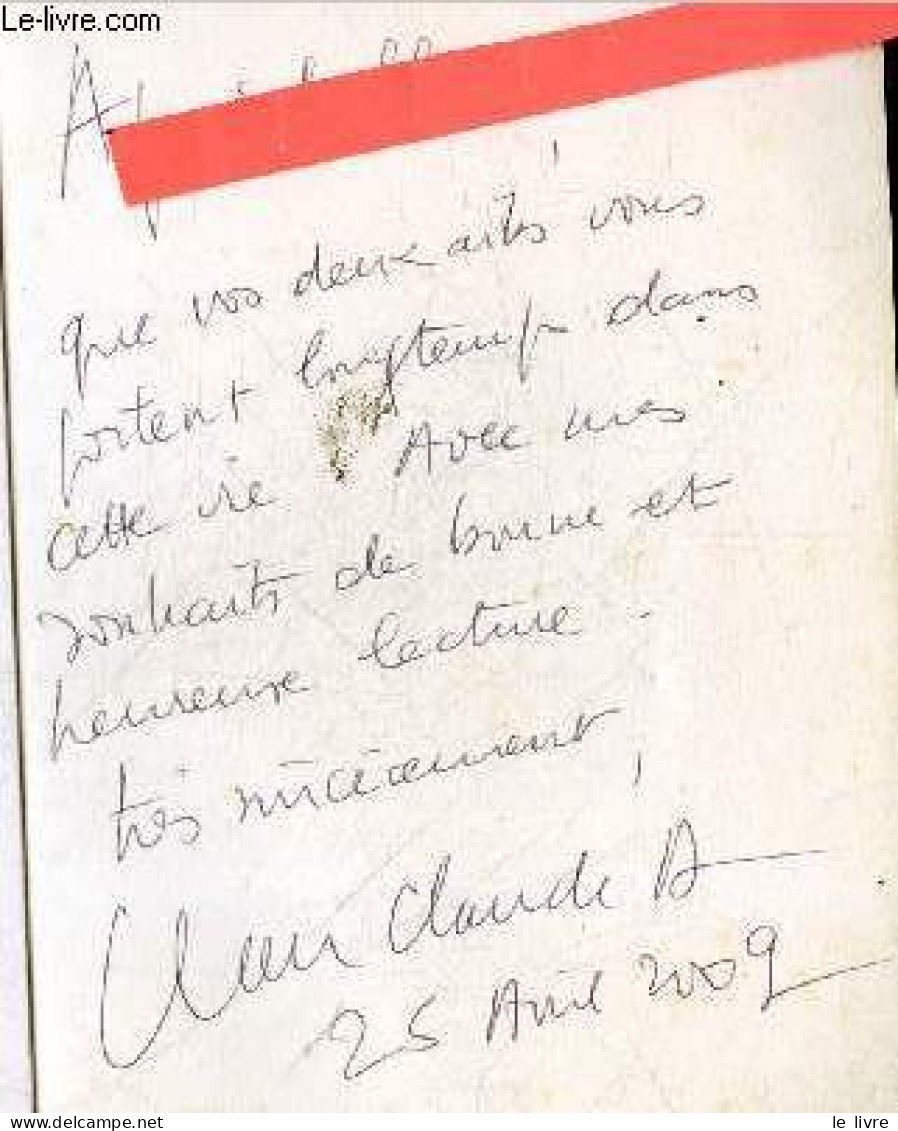 Le-livre.com
A
que vos deux ailes vous
portent longtemps dans
cette vie. Avec mes
souhaits de bonne et
heureuse lecture.
très sincèrement,
Claude
25 Avril 2009
le livre